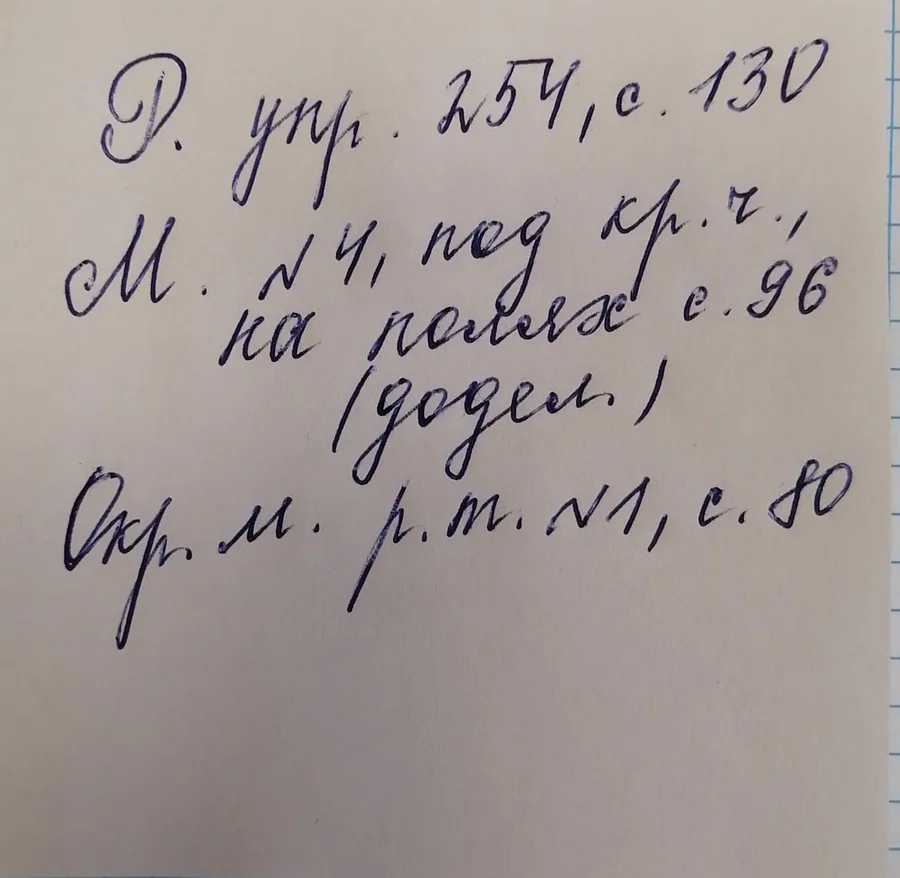 Р. упр. 254, с. 130
М. №4, под кр. ч.,
на полях с. 96
(додел.)
Окр. м. р. т. №1, с. 80